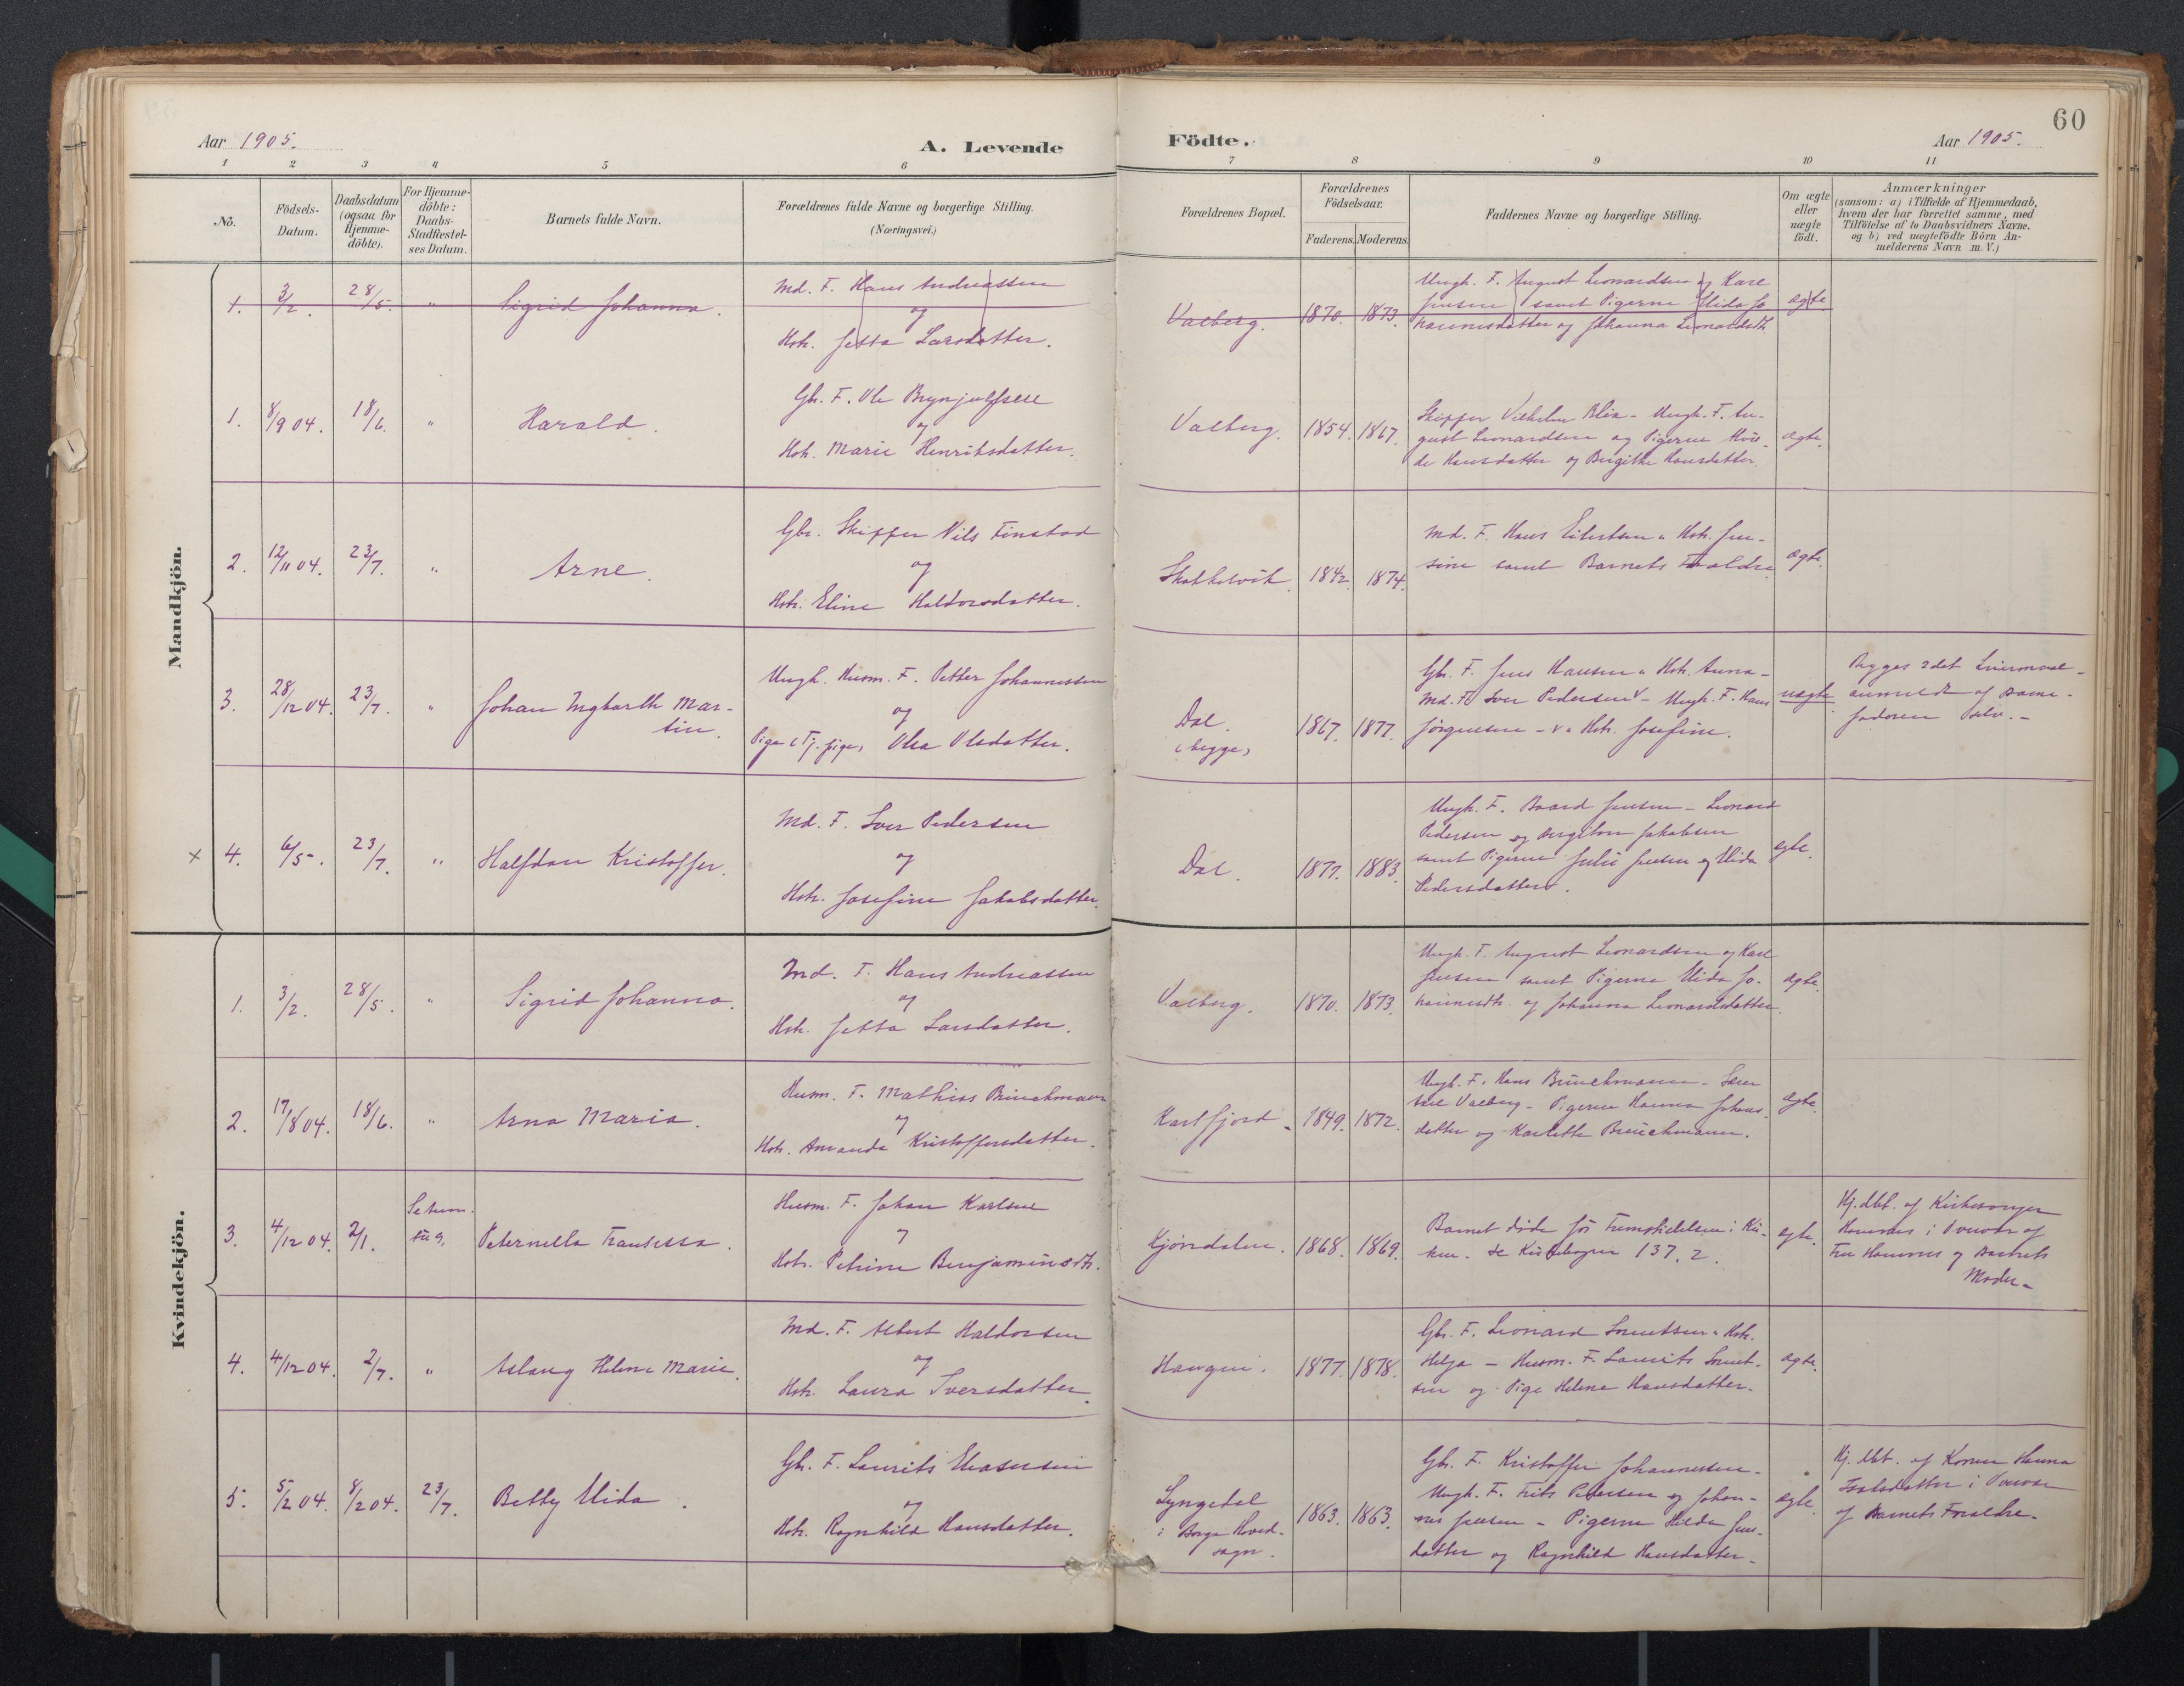 60
Aar 1905.
A. Levende
Födte.
Aar 1905.
1 2 3 4 5 6 7 8 9 10 11
Nö.
Födsels-
Datum.
Daabsdatum
(ogsaa for
Hjemme-
döbte).
For Hjemme-
döbte:
Daabs-
Stadfæstel-
ses Datum.
Barnets fulde Navn.
Forældrenes fulde Navne og borgerlige Stilling.
(Næringsvei.)
Forældrenes Bopæl.
Forældrenes
Födselsaar.
Faderens. Moderens.
Faddernes Navne og borgerlige Stilling.
Om ægte
eller
uægte
födt.
Anmærkninger
(saasom: a) i Tilfælde af Hjemmedaab,
hvem der har forrettet samme, med
Tilföielse af to Daabsvidners Navne.
og b) ved uægtefödte Börn An-
melderens Navn m. V.)
Mandkjön.
1. 3/2. 28/5. " Sigrid Johanna.
Md. F. Hans Andreassen
og
Hstr. Jetta Larsdatter.
Valberg. 1870. 1873.
Ungk. F. August Leonardsen og Karl
Jensen samt Pigerne Alida Jo-
hannesdatter og Johanna Leonardsdtr.
ægte
1. 8/9 04. 18/6. " Harald.
Gbr. F. Ole Brynjulfsen
og
Hstr. Marie Henriksdatter.
Valberg. 1854. 1867.
Skipper Vilhelm Blix - Ungk. F. Au-
gust Leonardsen og Pigerne
Hansdatter og Birgitte Hansdatter.
ægte.
2. 12/11 04. 23/7. " Arne.
Gbr. Skipper Nils Finstad
og
Hstr. Eline Haldorsdatter.
Skatkelvik. 1842. 1874.
Md. F. Hans Eilertsen " Hstr. Jen-
sine samt Barnets Forældre
ægte.
3. 28/12 04. 23/7. " Johan Ingbarth Mar-
tin.
Ungk. Husm. F. Petter Johannessen
og
Pige (Tj. pige) Olea Olsdatter.
Dal.
(begge)
1867. 1877.
Gbr. F. Jens Hansen " Hstr. Anna -
Md. F. Iver Pedersen - Ungk. F. Hans
Jörgensen - v " Hstr. Josefine.
uægte
Begges 2det Leiermaal -
anmeldt af Barne-
faderen selv. -
× 4. 6/5. 23/7. " Halfdan Kristoffer.
Md. F. Iver Pedersen
og
Hstr. Josefine Jakobsdatter.
Dal. 1877. 1883.
Ungk. F. Baard Jensen - Leonard
Pedersen og Jakobsen
samt Pigerne Julie Jensen og Alida
Pedersdatter.
ægte.
Kvindekjön.
1. 3/2. 28/5. " Sigrid Johanna.
Md. F. Hans Andreassen
og
Hstr. Jetta Larsdatter.
Valberg. 1870. 1873.
Ungk. F. August Leonardsen og Karl
Jensen samt Pigerne Alida Jo-
hannesdtr. og Johanna Leonardsdatter.
ægte.
2. 17/8 04. 18/6. " Arna Maria.
Husm. F. Mathias Brinchmann
og
Hstr. Amanda Kristoffersdatter.
Karlfjord. 1849. 1872.
Ungk. F. Hans Brinchmann -
Valberg - Pigerne Hanna Johans-
datter og Karlotte Brinchmann.
ægte.
3. 4/12 04. 2/1. Peternella Fransessa.
Husm. F. Johan Karlsen
og
Hstr. Petrine Benjaminsdtr.
Kjöndalen. 1868. 1869.
Barnet döde för Fremstillelsen i Kir-
ken. Se Kirkebogen 137. 2.
ægte.
Hj.dbt. af Kirkesanger
Hamnes i Overvær af
Fru Hamnes og Barnets
Moder -
4. 4/12 04. 2/7. " Aslaug Helene Marie.
Md. F. Albert Haldorsen
og
Hstr. Laura Iversdatter.
Haugen. 1877. 1878.
Gbr. F. Leonard Lorentsen " Hstr.
Helga - Husm. F. Laurits Lorent-
sen og Pige Helene Hansdatter.
ægte.
5. 5/2 04. 8/2 04. 23/7. Betty Alida.
Gbr. F. Laurits Eliasesen
og
Hstr. Ragnhild Hansdatter.
Lyngedal
i Borge Hoved-
sogn.
1863. 1863.
Gbr. F. Kristoffer Johannessen -
Ungk. F. Frits Petersen og Johan-
nes Jensen - Pigerne Hilda Jens-
datter og Ragnhild Hansdatter -
ægte.
Hj. dbt. af Konen Hanna
i Overvær
af Barnets Forældre.